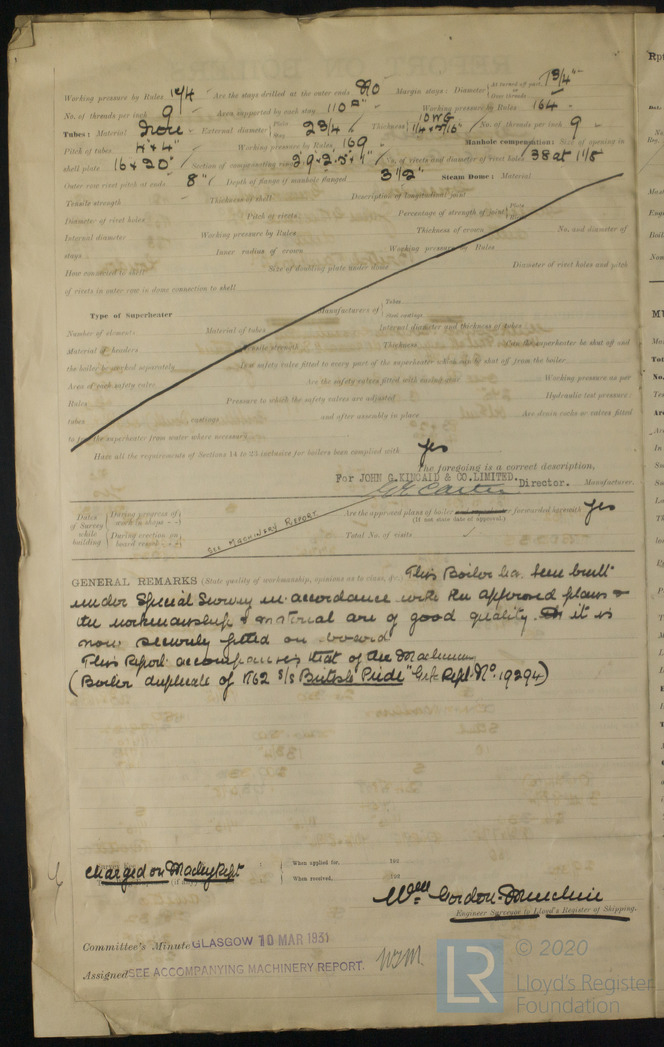 Working pressure by Rules 174 Are the stays drilled at the outer ends No Margin stays: Diameter { At turned off part, or Over threads 1 3/4"
No. of threads per inch 9 Area supported by each stay 110 □" Working pressure by Rules 164
Tubes: Material Iron External diameter { Plain Stay 2 3/4 Thickness { 10 WG 1/4 & 5/16" No. of threads per inch 9
Pitch of tubes 4" x 4" Working pressure by Rules 169 Manhole compensation: Size of opening in
shell plate 16 x 20" Section of compensating No. of rivets and diameter of rivet holes 38 at 1 1/8
Outer row rivet pitch at ends 8" Depth of flange if manhole flanged 3 1/2" Steam Dome: Material
Tensile strength Thickness of shell Description of longitudinal joint
Diameter of rivet holes Pitch of rivets Percentage of strength of joint { Plate Rivets
Internal diameter Working pressure by Rules Thickness of crown No. and diameter of
stays Inner radius of crown Working pressure by Rules
How connected to shell Size of doubling plate under dome Diameter of rivet holes and pitch
of rivets in outer row in dome connection to shell
Type of Superheater Manufacturers of { Tubes Steel castings
Number of elements Material of tubes Internal diameter and thickness of tubes
Material of headers Tensile strength Thickness Can the superheater be shut off and
the boiler be worked separately Is a safety valve fitted to every part of the superheater which can be shut off from the boiler
Area of each safety valve Are the safety valves fitted with easing gear Working pressure as per
Rules Pressure to which the safety valves are adjusted Hydraulic test pressure:
tubes castings and after assembly in place Are drain cocks or valves fitted
to free the superheater from water where necessary
Have all the requirements of Sections 14 to 23 inclusive for boilers been complied with yes
The foregoing is a correct description,
For JOHN G. KINCAID & CO. LIMITED.
Director. Manufacturer.
Dates of Survey while building { During progress of work in shops - - During erection on board vessel - - SEE MACHINERY REPORT. Are the approved plans of boiler forwarded herewith yes
(If not state date of approval.)
Total No. of visits
GENERAL REMARKS (State quality of workmanship, opinions as to class, &c. This Boiler has been built
under Special Survey in accordance with the approved plans &
the workmanship & material are of good quality. it is
now securely fitted on board
This Report accompanies that of the Machinery
(Boiler duplicate of 1762 S/S "British Pride" Grk Rept No. 19294)
charged on Machy Rept
When applied for, 193
When received, 193
Wm Gordon
Engineer Surveyor to Lloyd's Register of Shipping.
Committee's Minute GLASGOW 10 MAR 1931
Assigned SEE ACCOMPANYING MACHINERY REPORT.
© 2020
LR
Lloyd's Register
Foundation